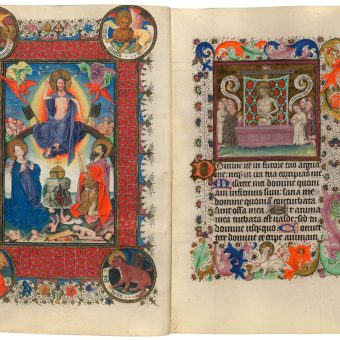 Domine ne in furore tuo arguas
me neqz in ira tua corripias me
Miserere mei domine quoni
am infirmus sum sana me
domine quoniam conturbata
sunt ossa mea Et anima
mea turbata est valde sed tu
domine usquequo Conver
tere domine et eripe animam